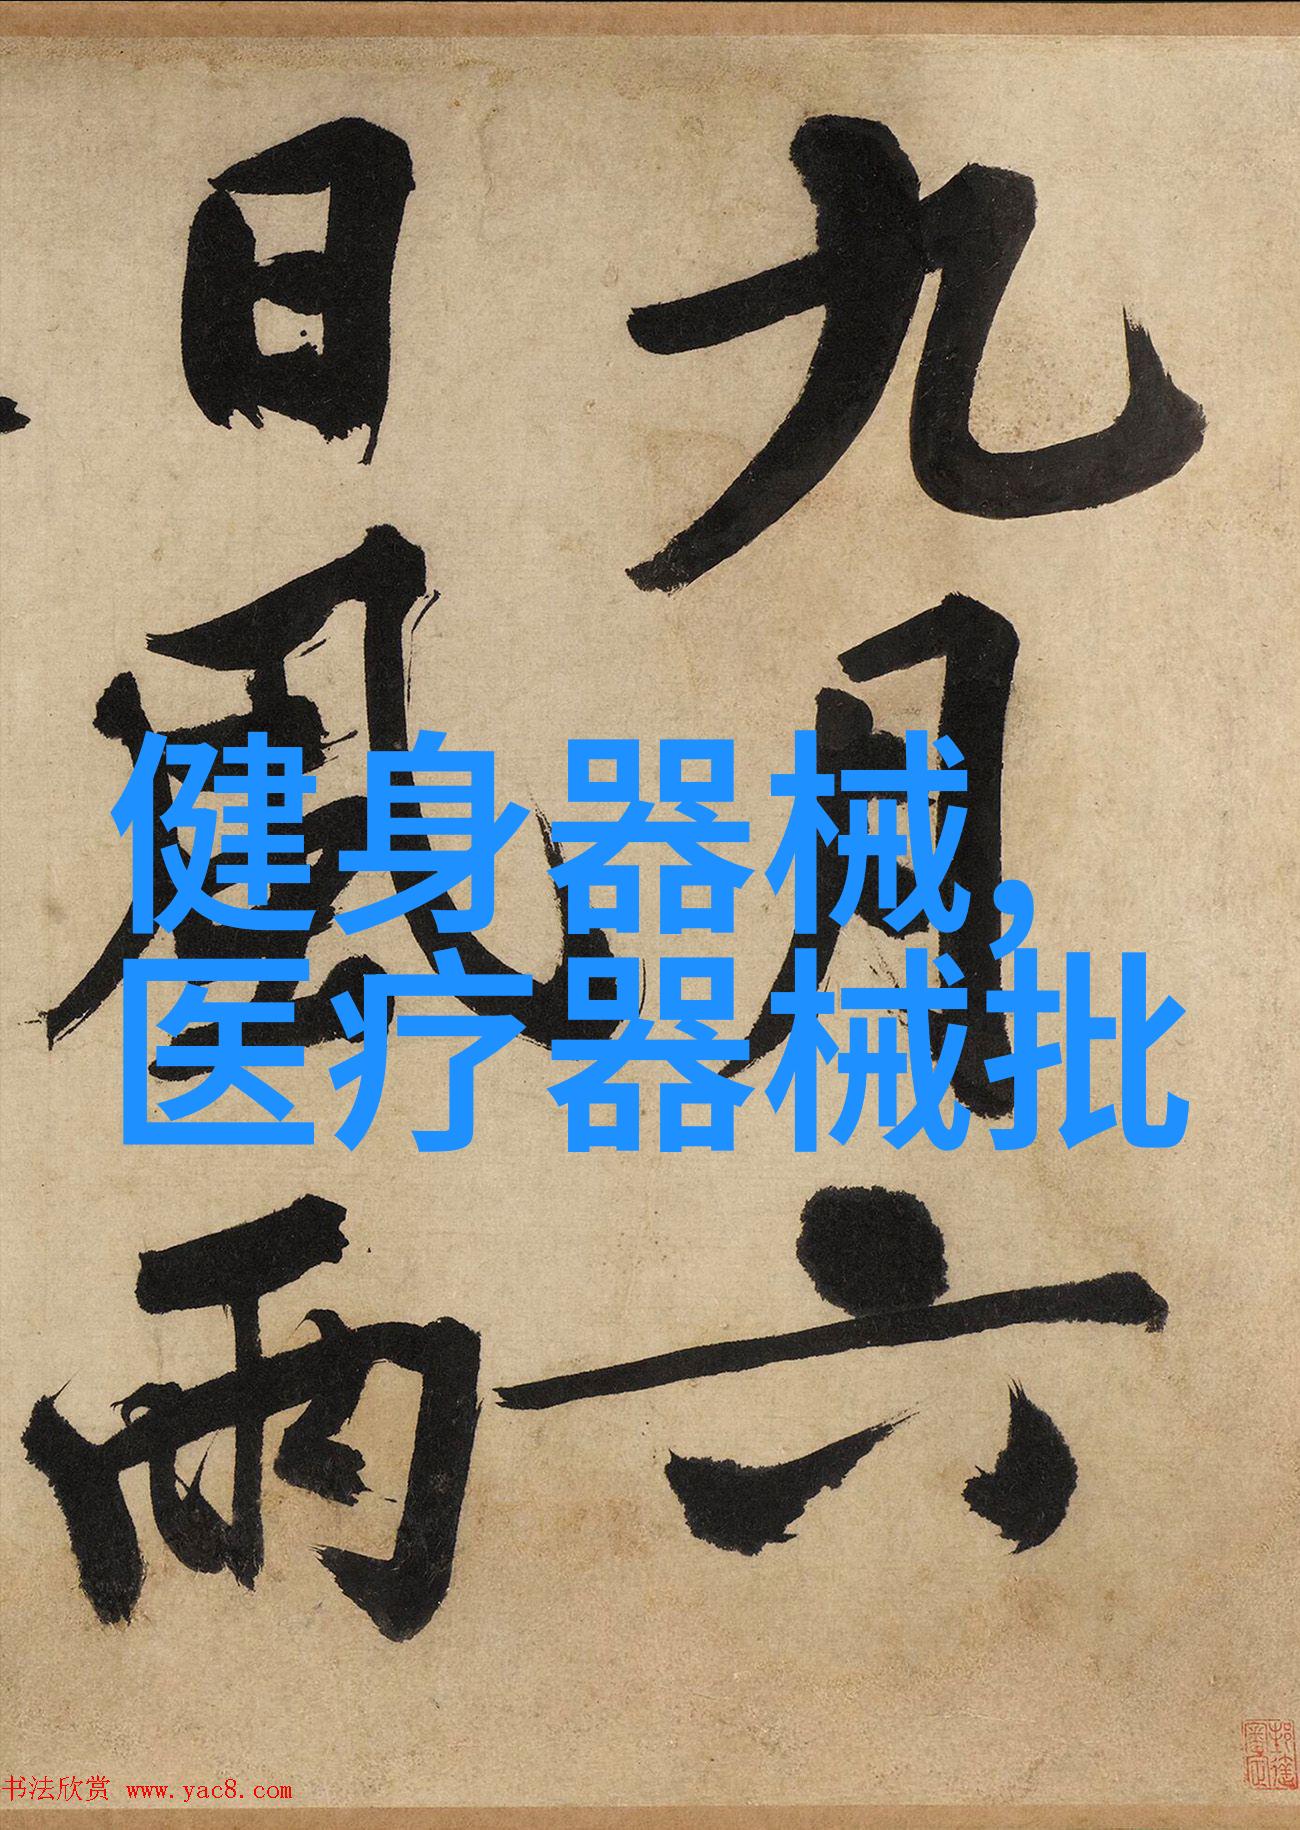 九月六
日風雨
健身器械,
医疗器械批
书法欣赏 www.yac8.com